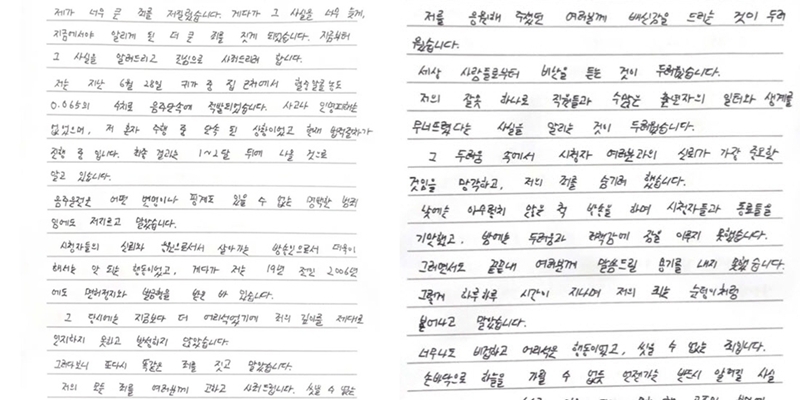 제가 너무 큰 죄를 저질렀습니다. 게다가 그 사실을 너무 늦게,
지금에서야 알리게 된 더 큰 죄를 짓게 되었습니다. 지금부터
그 사실을 알려드리고 진심으로 사죄드리려 합니다.
저는 지난 6월 28일 귀가 중 집 근처에서 혈중알콜농도
0.065의 수치로 음주단속에 적발되었습니다. 사고나 인명피해는
없었으며, 저 혼자 수행 중 단속 된 상황이었고 현재 법적절차가
진행 중 입니다. 최종 결과는 1~2달 뒤에 나올 것으로
알고 있습니다.
음주운전은 어떤 변명이나 핑계도 있을 수 없는 명백한 범죄
임에도 저지르고 말았습니다.
시청자들의 신뢰와 사랑으로서 살아가는 방송인으로서 더욱이
해서는 안 되는 행동이었고, 게다가 저는 19년 전인 2006년
에도 면허정지와 벌금형을 받은 바 있습니다.
그 당시에는 지금보다 더 어리석었기에 죄의 깊이를 제대로
인지하지 못하고 반성하지 않았습니다.
그러다보니 또다시 똑같은 죄를 짓고 말았습니다.
저의 모든 죄를 여러분께 고하고 사죄드립니다. 씻을 수 없는
저를 응원해 주셨던 여러분께 배신감을 드리는 것이 두려
웠습니다.
세상 사람들로부터 비난을 듣는 것이 두려웠습니다.
저의 잘못 하나로 직원들과 수많은 출연자의 일터와 생계를
무너뜨렸다는 사실을 알리는 것이 두려웠습니다.
그 두려움 속에서 시청자 여러분과의 신뢰가 가장 중요한
것임을 망각하고, 저의 죄를 숨기려 했습니다.
낮에는 아무렇지 않은 척 방송을 하며 시청자들과 동료들을
기만했고, 밤에는 두려움과 죄책감에 잠을 이루지 못했습니다.
그러면서도 끝끝내 여러분께 말씀드릴 용기를 내지 못했습니다.
그렇게 하루하루 시간이 지나며 저의 죄는 눈덩이처럼
불어나고 말았습니다.
너무나도 비겁하고 어리석은 행동이었고, 씻을 수 없는 죄입니다.
손바닥으로 하늘을 가릴 수 없듯 언젠가는 반드시 알려질 사실